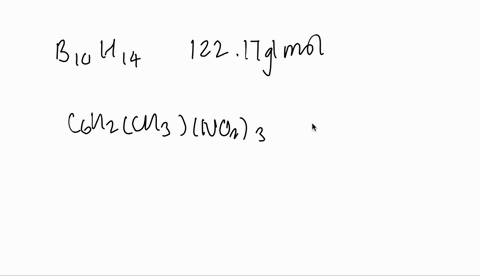 B₁₀H₁₄ 122.17g/mol
C₆H₂(CH₃)(NO₂)₃